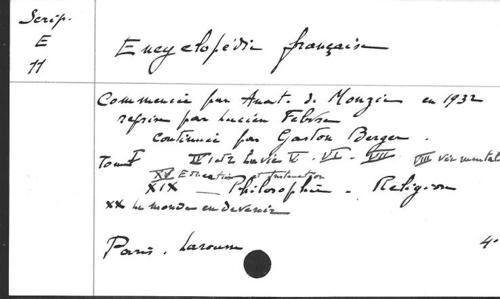 Scrip.
E
11
Encyclopédie française
Commencée par Anat. de Monzie en 1932
reprise par Lucien Febvre
continuée par Gaston Berger.
Tome I IV 1 et 2 La vie V - VI - VII VIII vie mentale
XV Education et Instruction
XIX - Philosophie - Religion
XX Le monde en devenir
Paris. Larousse
4°